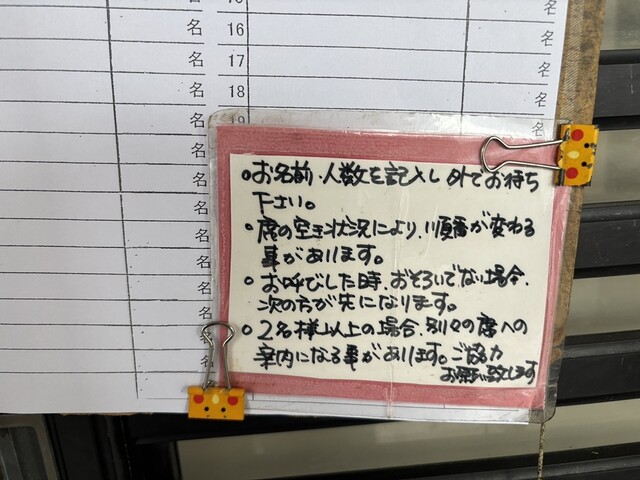 名
16 名
名 17 名
名 18 名
名 19
名
名
名
名
名
名
名
名
•お名前・人数を記入し 外でお待ち
下さい。
•席の空き状況により、順番が変わる
事があります。
•お呼びした時、おそろいでない場合、
次の方が先になります。
•2名様以上の場合、別々の席への
案内になる事があります。ご協力
お願い致します